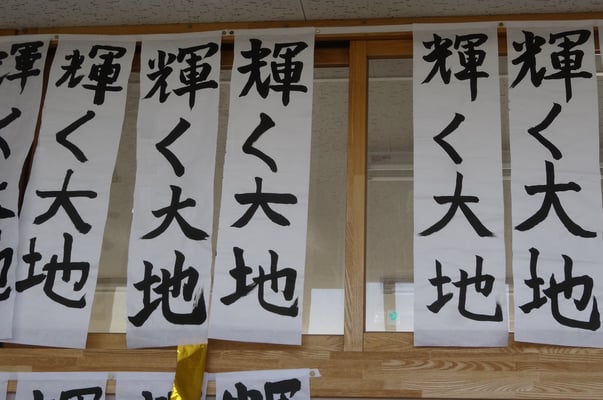 輝く大地
輝く大地
輝く大地
輝く大地
輝く大地
輝く大地
輝
輝
輝